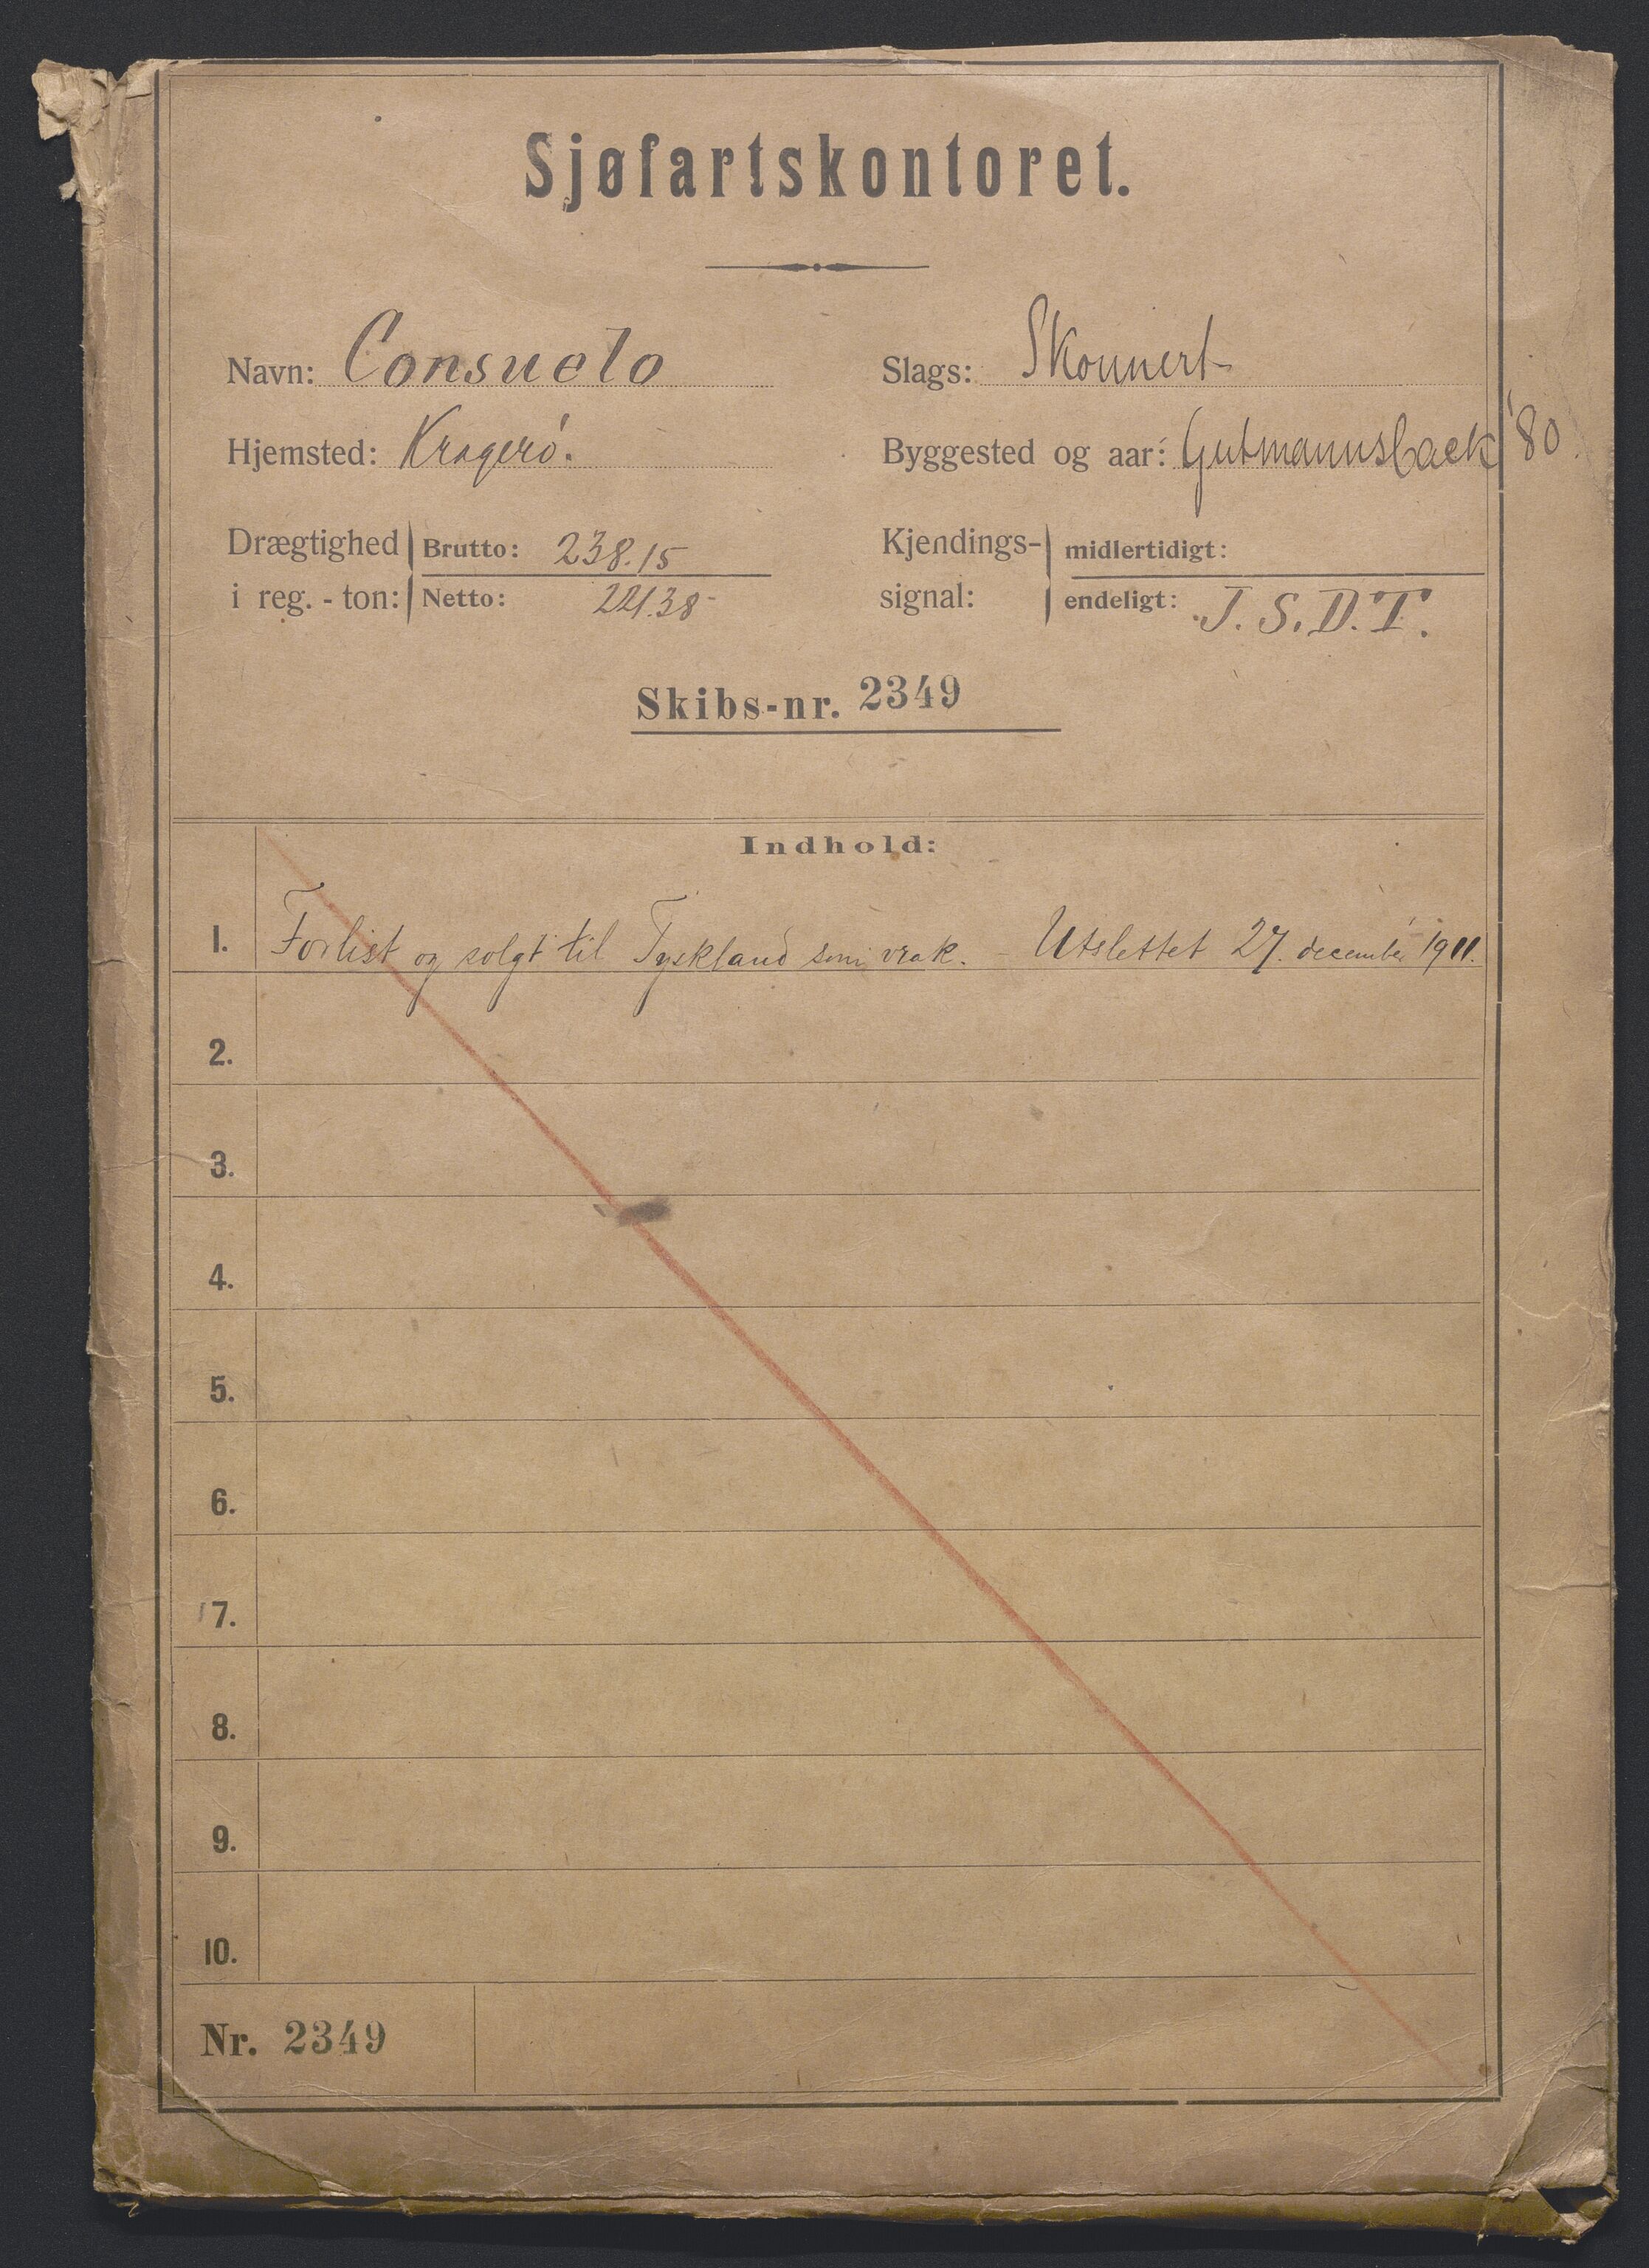 Sjøfartskontoret.
Navn: Consuelo
Slags: Skonnert
Hjemsted: Kragerö.
Byggested og aar: Gutmannsback '80
Drægtighed i reg.-ton: Brutto: 238.15
Netto: 221.38
Kjendings-signal: midlertidigt:
endeligt: J.S.D.T.
Skibs-nr. 2349
Indhold:
1. Forlist og solgt til Tyskland som vrak. – Utslettet 27. december 1911.
2.
3.
4.
5.
6.
7.
8.
9.
10.
Nr. 2349